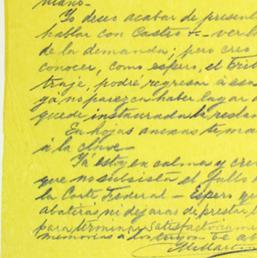 mano.-
Yo deseo acabar de present
hablar con Castro &- verb
de la demanda; pero creo
conocer, como espero, el Trib
traje, podré regresar á esa
ya no parezca haber lugar á
quede instaurada la
En hojas anexas te ma
á la clave.-
Yá estoy en calmas y cre
que no subsista el fallo d
la Corte Federal- Espero qu
abatirás ni dejarás de prestar
para terminar satisfactoriam
memorias á los